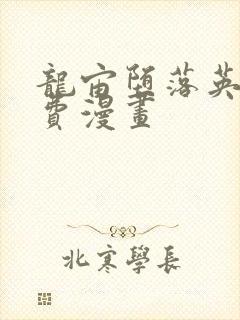 龍宙堕落英
費漫畫
北寒學長